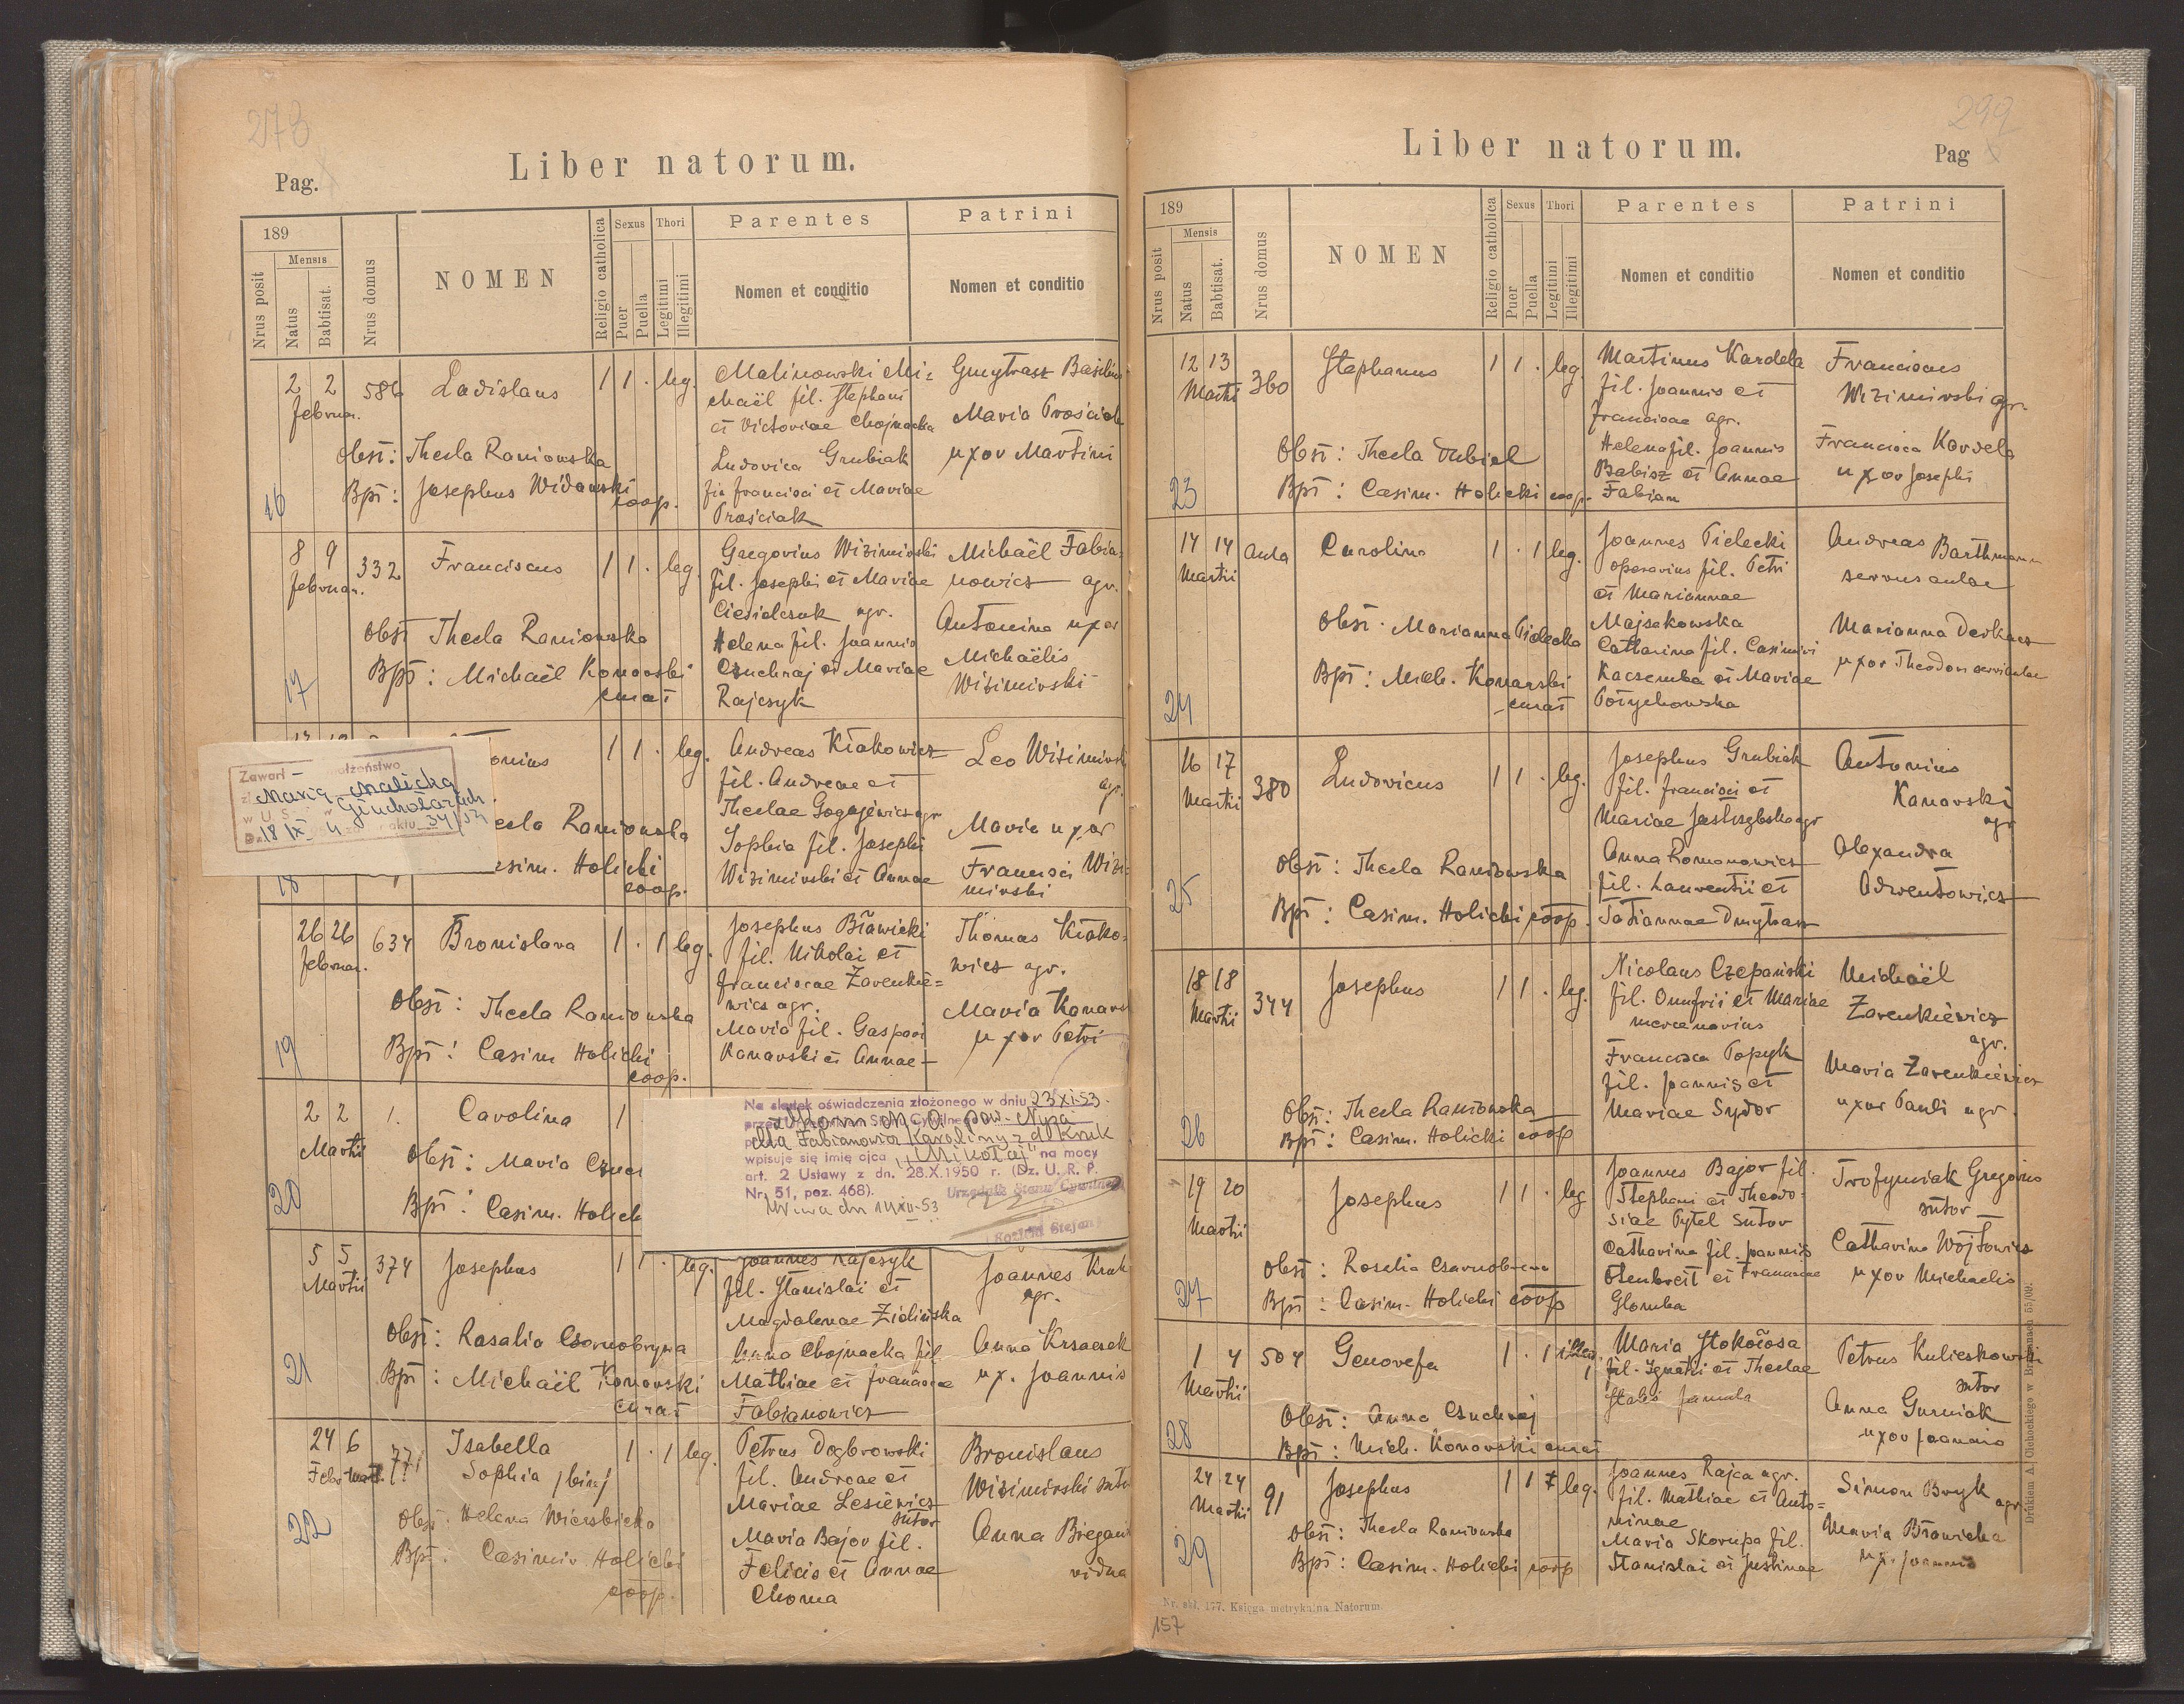 278
Pag.
Liber natorum.
189
Nrus posit
Mensis
Natus
Babtisat.
Nrus domus
NOMEN
Religio catholica
Sexus
Puer
Puella
Thori
Legitimi
Illegitimi
Parentes
Nomen et conditio
Patrini
Nomen et conditio
2 2
Februar.
586
Ladislaus
1 1 . leg.
Malinowski Mi-
chaël fil. Stephani
et Victoriae Chojnacka
Ludovica Grubiak
fia Francisci et Mariae
Prościak
Gmytrasz Basilius
Maria Prościak
uxor Martini
Obst: Thecla Raniowska
Bpt: Josephus Widawski
coop.
16
8 9
Februar.
332
Franciscus
1 1 . leg.
Gregorius Wizimirski
fil. Josephi et Mariae
Ciesielczuk agr.
Helena fil. Joannis
Czuchraj et Mariae
Rajczyk
Michaël Fabia-
nowicz agr.
Antonina uxor
Michaëlis
Wizimirski
Obst Thecla Raniowska
Bpt: Michaël Konorski
curat
17
onius
1 1 . leg.
Andreas Kłakowicz
fil. Andreae et
Theclae Gogojewicz agr
Sophia fil. Josephi
Wizimirski et Annae
Leo Wizimirski
agr.
Maria uxor
Francisci Wizi-
mirski
ecla Raniowska
asim. Holicki
coop.
18
Zawarł - małżeństwo
Marią Malicką
w U.S. w Głuchołazach
Dn. 18 IX 54 aktu 34/54
26 26
Februar.
634
Bronislava
1 . 1 leg.
Josephus Bławicki
fil. Nikolai et
Franciscae Zarenkie-
wicz agr.
Maria fil. Gaspari
Kanarski et Annae
Thomas Kłako-
wicz agr.
Maria Kanars
uxor Petri
Obst: Thecla Raniowska
Bpt: Casim Holicki
coop.
19
2 2
Martii
1.
Carolina
1
Obst: Maria Czuc
Bpt: Casim. Holick
20
Na skutek oświadczenia złożonego w dniu 23 XI.53.
przed Urzędnikiem Stanu Cywilnego
dla Fabianowicz Karoliny z d. Kruk
wpisuje się imię ojca „Mikołaj" na mocy
art. 2 Ustawy z dn. 28.X.1950 r. (Dz. U. R. P.
Nr. 51, poz. 468).
Urzędnik Stanu Cywilnego
Koziński Stefan
5 5
Martii
374
Josephus
1 1 . leg.
Joannes Rajczyk
fil. Stanislai et
Magdalenae Zielińska
Anna Chojnacka fil.
Mathiae et Franciscae
Fabianowicz
Joannes Kruk
agr.
Anna Krzaczek
ux. Joannis
Obst: Rosalia Czarnobrywa
Bpt: Michaël Konorski
curat
21
24 6
Febr Mart.
771
Isabella
Sophia /bin/
1 . 1 leg.
Petrus Dąbrowski
fil. Andreae et
Mariae Lesiewicz
sutor
Maria Bajor fil.
Felicis et Annae
Choma
Bronislaus
Wizimirski sutor
Anna Biegani
vidua
Obst. Helena Wierzbicka
Bpt. Casimir. Holicki
coop.
22
299
Liber natorum.
Pag
189
Nrus posit
Mensis
Natus
Babtisat.
Nrus domus
NOMEN
Religio catholica
Sexus
Puer
Puella
Thori
Legitimi
Illegitimi
Parentes
Nomen et conditio
Patrini
Nomen et conditio
12 13
Martii
360
Stephanus
1 1 . leg.
Martinus Kardela
fil. Joannis et
Franciscae agr.
Helena fil. Joannis
Babisz et Annae
Fabian
Franciscus
Wizimirski agr.
Francisca Kardela
uxor Josephi
Obst: Thecla Dubiel
Bpt: Casim. Holicki coop.
23
14 14
Martii
aula
Carolina
1 . 1 leg.
Joannes Pielecki
operarius fil. Petri
et Mariannae
Majzakowska
Catharina fil. Casimiri
Kaczemba et Mariae
Potychowska
Andreas Barthmann
servus aulae
Marianna Derkacz
uxor Theodori servi aulae
Obst. Marianna Pielecka
Bpt: Mich. Konarski
curat
24
16 17
Martii
380
Ludovicus
1 1 . leg.
Josephus Grubiak
fil. Francisci et
Mariae Jastrzębska agr
Anna Romanowicz
fil. Laurentii et
Tatiannae Dmytrasz
Antonius
Kanarski
agr
Alexandra
Adwentowicz
Obst: Thecla Raniowska
Bpt: Casim. Holicki coop.
25
18 18
Martii
344
Josephus
1 1 . leg.
Nicolaus Czepański
fil. Onufrii et Mariae
mercenarius
Francisca Popyk
fil. Joannis et
Mariae Sydor
Michaël
Zarenkiewicz
agr.
Maria Zarenkiewicz
uxor Pauli agr.
Obst: Thecla Raniowska
Bpt: Casim. Holicki coop
26
19 20
Martii
Josephus
1 1 . leg
Joannes Bajor fil.
Stephani et Theodo-
siae Pytel sutor
Catharina fil. Joannis
Otenbreit et Franciscae
Glomba
Trofymiak Gregorius
sutor
Catharina Wojtowicz
uxor Michaelis
Obst: Rosalia Czarnobrewa
Bpt: Casim. Holicki coop
27
1 4
Martii
504
Genovefa
1 . 1 illeg.
Maria Stokołosa
fil. Ignatii et Theclae
famula
Petrus Kulczkowski
sutor
Anna Gurniak
uxor Joannis
Obst: Anna Czuchraj
Bpt: Mich. Konorski curat
28
24 24
Martii
91
Josephus
1 1 leg.
Joannes Rajca agr.
fil. Mathiae et Anto-
ninae
Maria Skorupa fil.
Stanislai et Justinae
Simon Bryk agr
Maria Bławicka
ux. Joannis
Obst: Thecla Raniowska
Bpt: Casim. Holicki coop
29
Nr. skł. 177. Księga metrykalna Natorum.
157
Drukiem A. Cichockiego w Brzeżanach 65/09.